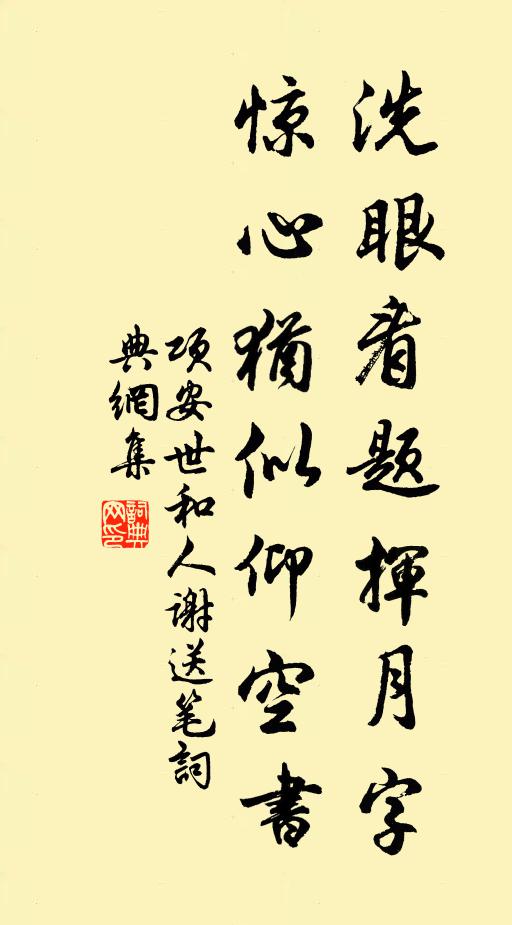 洗眼看题揮月字
惊心猶似仰空書
项安世和人谢送笔詞
典網集
詞典网印